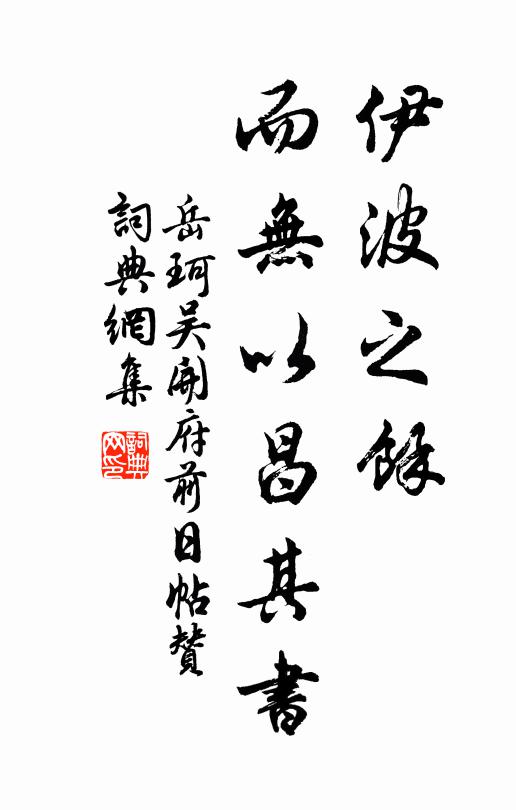 伊波之餘
而無以昌其書
岳珂吴開府前日帖贊
詞典網集
詞典網印